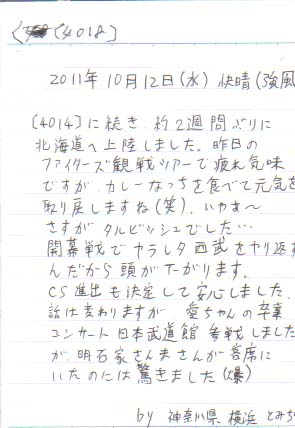 [4018]
2011年10月12日(水) 快晴(強風
[4014]に続き 約2週間ぶりに
北海道へ上陸しました。昨日の
ファイターズ観戦ツアーで疲れ気味
ですが カレーなっちを食べて元気を
取り戻しますね(笑)。いやぁ〜
さすがダルビッシュでした…
開幕戦でヤラレタ西武をヤり返す
んだから頭が下がります。
CS進出も決定して安心しました。
話は変わりますが 愛ちゃんの卒業
コンサート日本武道館 参戦しました
が、明石家さんまさんが客席に
いたのには驚きました(爆)
by 神奈川県 横浜 とみち